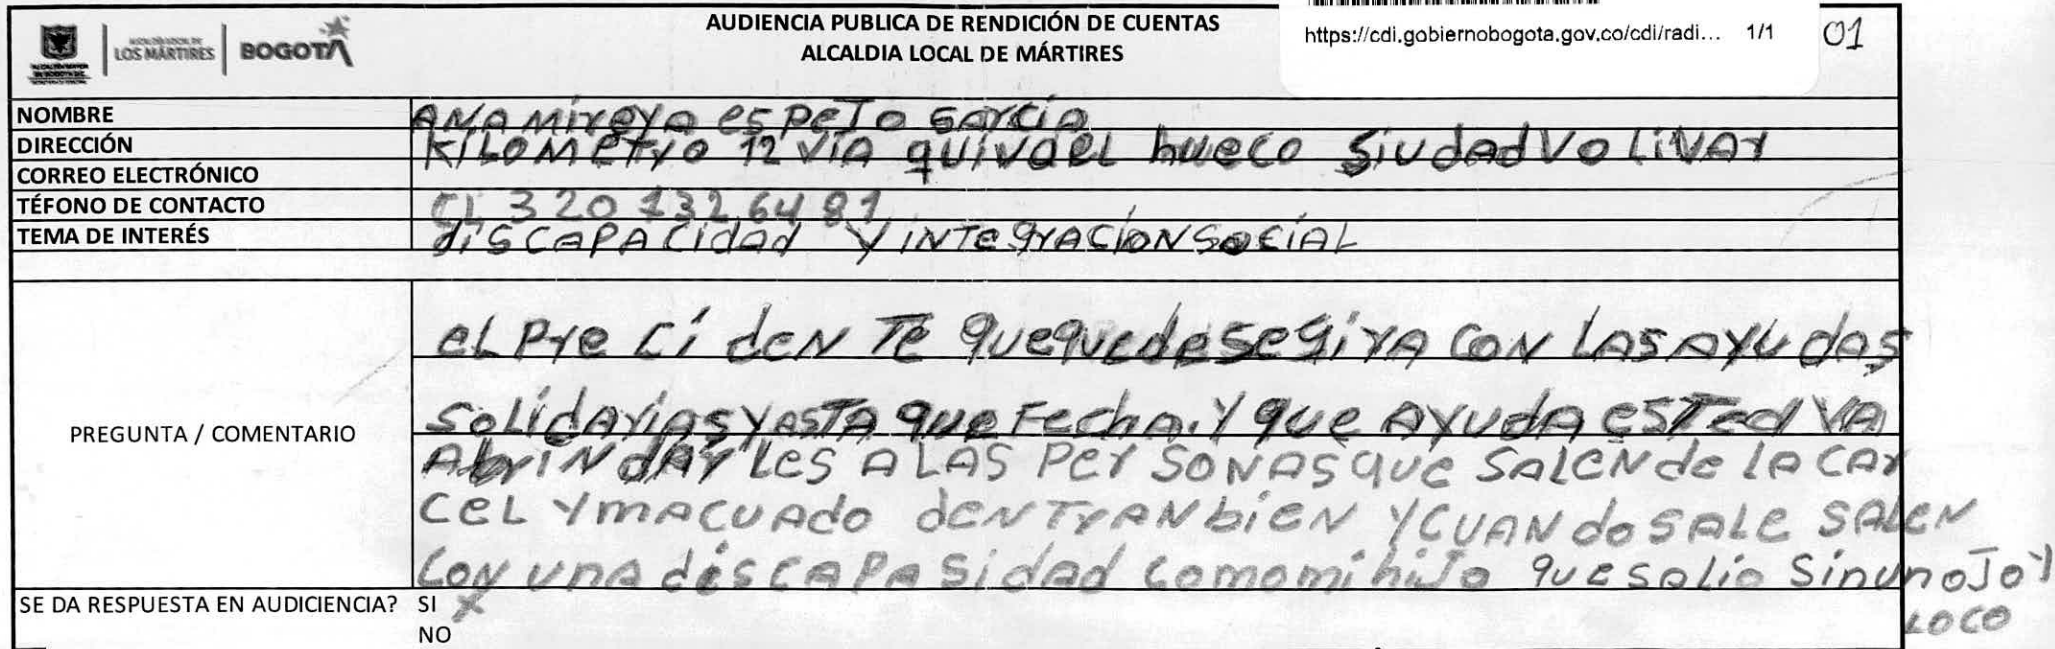 AUDIENCIA PUBLICA DE RENDICIÓN DE CUENTAS
ALCALDIA LOCAL DE MÁRTIRES
https://cdi.gobiernobogota.gov.co/cdi/radi... 1/1
01
LOS MÁRTIRES
BOGOTÁ
NOMBRE ANA mireya espeJo Garcia
DIRECCIÓN KiLOMetro 12 vía quivael hueco Siudad VoLiVar
CORREO ELECTRÓNICO
TÉFONO DE CONTACTO CL 320 132 64 81
TEMA DE INTERÉS discapacidad y iNTegraciONSociaL
PREGUNTA / COMENTARIO
eL Pre Ci deN Te quequedasegira CON LAS Ayudas
Solidarias y asTA que Fecha. Y que AyudA esTed VA
AbriNdarles A LAS PerSONAS que SALeN de la Car
CeL Y MACUADO deNTrAN bieN Y CUANdo SALe SALeN
CON uNA discapasidad comomi hiJo que salio Sin un oJo y
LOCO
SE DA RESPUESTA EN AUDICIENCIA? SI X
NO